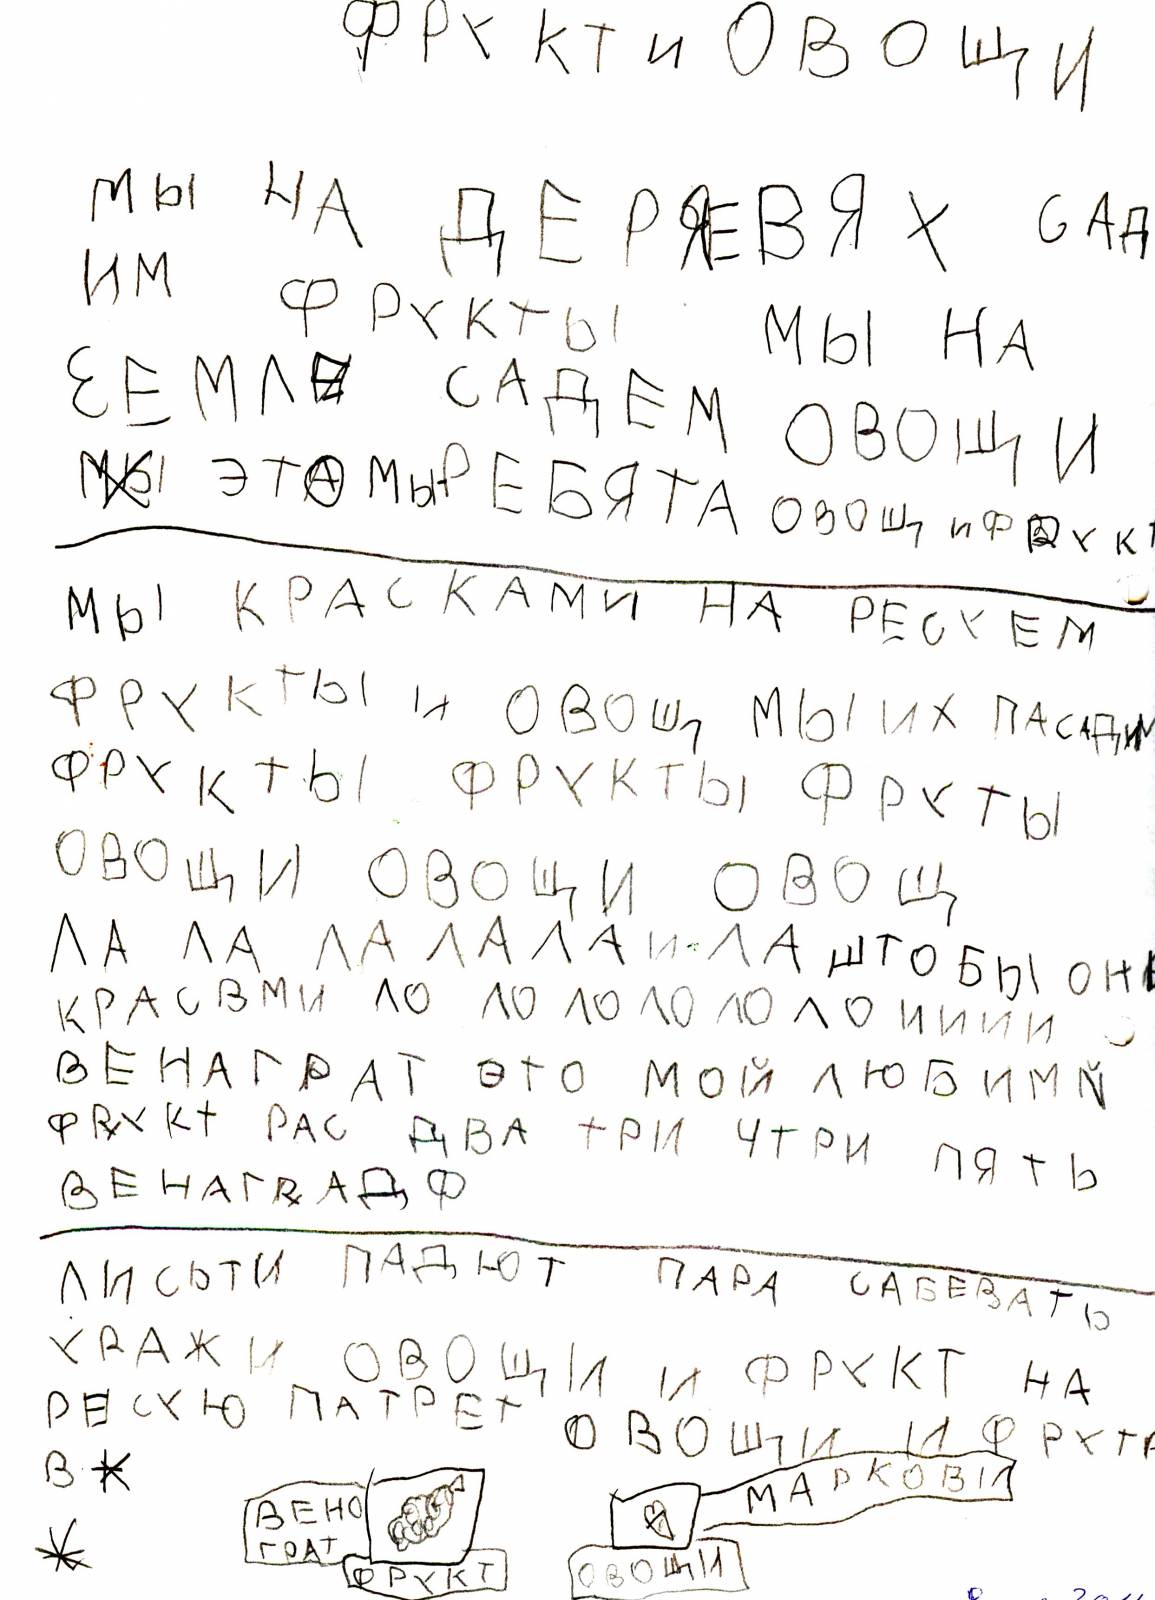 ФРУКТ И ОВОЩИ
МЫ НА ДЕРЕВЯХ САД
ИМ ФРУКТЫ МЫ НА
ЗЕМЛЕ САДЕМ ОВОЩИ
ЭТА МЫ РЕБЯТА ОВОЩ И ФРУКТ
МЫ КРАСКАМИ НА РЕСУЕМ
ФРУКТЫ И ОВОЩ МЫ ИХ ПАСАДИМ
ФРУКТЫ ФРУКТЫ ФРУТЫ
ОВОЩИ ОВОЩИ ОВОЩ
ЛА ЛА ЛА ЛА ЛА ЛА И ЛА ШТОБЫ ОНИ
КРАСВМИ ЛО ЛО ЛО ЛО ЛО ЛО ИИИИ
ВЕНАГРАТ ЭТО МОЙ ЛЮБИМЙ
ФРУКТ РАС ДВА ТРИ ЧТРИ ПЯТЬ
ВЕНАГРАДФ
ЛИСЬТИ ПАДЮТ ПАРА САБЕВАТЬ
УРАЖИ ОВОЩИ И ФРУКТ НА
РЕСУЮ ПАТРЕТ ОВОЩИ И ФРУТА
В
ВЕНО
ГРАТ
ФРУКТ
МАРКОВИ
ОВОЩИ